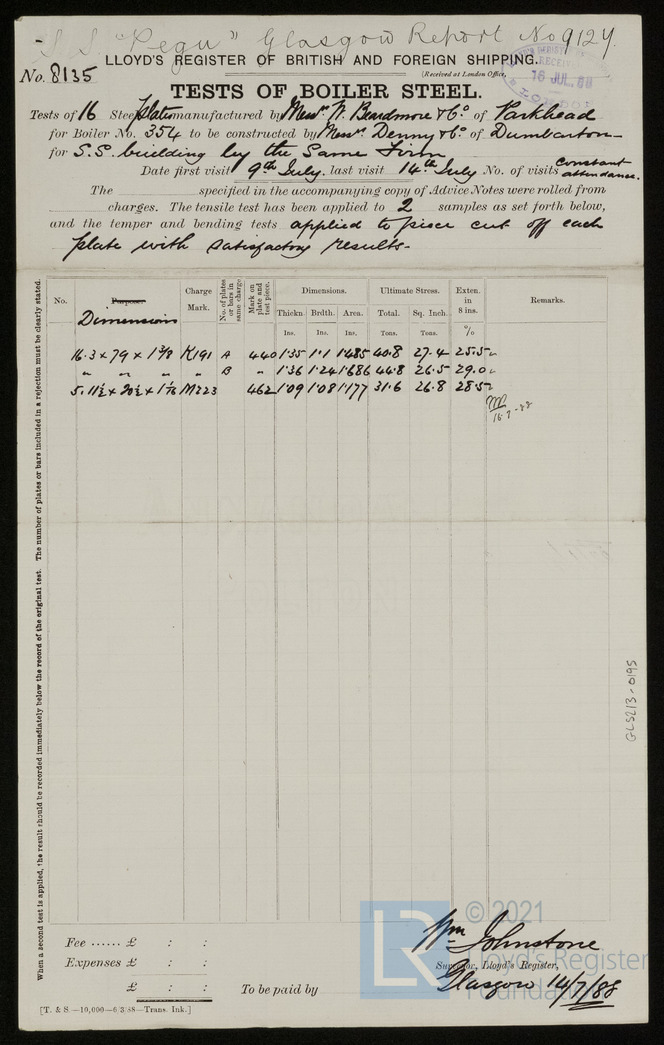 S.S. "Pegu" Glasgow Report No 9124.
LLOYD'S REGISTER OF BRITISH AND FOREIGN SHIPPING.
No. 8135
(Received at London Office,
16 JUL. 88
TESTS OF BOILER STEEL.
Tests of 16 Steel Plates manufactured by Messrs W. Beardmore & Co. of Parkhead
for Boiler No. 354 to be constructed by Messrs Denny & Co. of Dumbarton
for S.S. building by the Same Firm
Date first visit 9th July, last visit 14th July No. of visits constant attendance.
The specified in the accompanying copy of Advice Notes were rolled from
charges. The tensile test has been applied to 2 samples as set forth below,
and the temper and bending tests applied to piece cut off each
plate with satisfactory results-
No. Purpose. Charge Mark. No. of plates or bars in same charge Mark on plate and test piece. Dimensions. Ultimate Stress. Exten. in 8 ins. Remarks.
Dimensions
Thickn. Brdth. Area. Total. Sq. Inch.
Ins. Ins. Ins. Tons. Tons. %
16.3 x 79 x 1 3/8 K191 A 440 1.35 1.1 1.485 40.8 27.4 25.5
" " " " B " 1.36 1.24 1.686 44.8 26.5 29.0
5.11½ x 20½ x 1 1/16 M223 462 1.09 1.08 1.177 31.6 26.8 28.5
16.7-88
When a second test is applied, the result should be recorded immediately below the record of the original test. The number of plates or bars included in a rejection must be clearly stated.
GLS213-0195
Fee ...... £ : :
Expenses £ : :
£ : :
To be paid by
Wm Johnstone
Surveyor, Lloyd's Register,
Glasgow 14/7/88
[T. & S.—10,000—6/3/88—Trans. Ink.]
LR © 2021
Lloyd's Register
Foundation